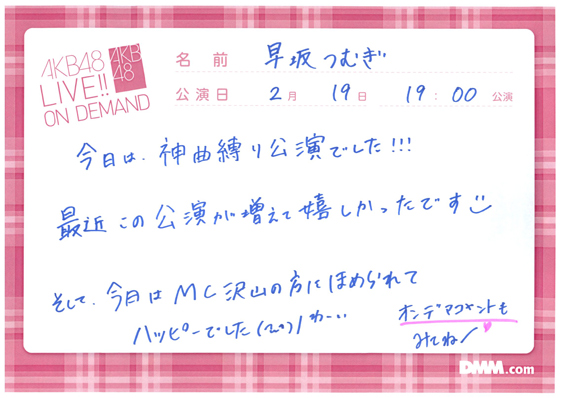 AKB48
LIVE!!
ON DEMAND
AKB
48
名前 早坂つむぎ
公演日 2月 19日 19:00 公演
今日は、神曲縛り公演でした!!!
最近この公演が増えて嬉しかったです
そして、今日はMC沢山の方にほめられて
ハッピーでした(^^)/ わーい
オンデマコメントも
みてね
DMM.com